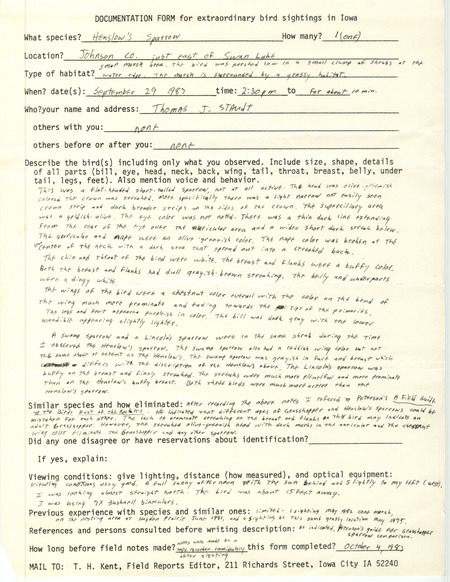 DOCUMENTATION FORM for extraordinary bird sightings in Iowa
What species? Henslow's Sparrow How many? 1 (one)
Location? Johnson Co. just east of Swan Lake
small marsh area. The bird was perched low in a small clump of shrubs at the
Type of habitat? water edge. The marsh is surrounded by a grassy habitat.
When? date(s): September 29 1983 time: 2:30 pm to for about 10 min.
Who? your name and address: Thomas J. Staudt
others with you: none
others before or after you: none
Describe the bird(s) including only what you observed. Include size, shape, details
of all parts (bill, eye, head, neck, back, wing, tail, throat, breast, belly, under
tail, legs, feet). Also mention voice and behavior.
This was a flat-headed short-tailed sparrow, not at all active. The head was olive-greenish
colored the crown was streaked. More specifically there was a light narrow not easily seen
crown strip and dark broader strips on the sides of the crown. The superciliary area
was a goldish-olive. The eye color was not noted. There was a thin dark line extending
from the rear of the eye over the auricular area and a wider short dark streak below.
The auricular and nape were an olive greenish color. The nape color was broken at the
center of the neck with a dark area that spread out into a streaked back.
The chin and throat of the bird were white. The breast and flanks were a buffy color.
Both the breast and flanks had dull grayish brown streaking. The belly and underparts
were a dingy white.
The wings of the bird were a chestnut color overall with the color on the bend of
the wing much more prominate and fading towards the tips of the primaries.
The legs and feet appeared purplish in color. The bill was dark gray with the lower
mandible appearing slightly lighter.
A swamp sparrow and a Lincoln's sparrow were in the same shrub during the time
I observed the Henslow's sparrow. The swamp sparrow also had a reddish wing color but not
the same shade or extent as the Henslow's. The swamp sparrow was grayish in face and breast which
differs with the discription of the Henslow's above. The Lincoln's sparrow was
buffy on the breast and finely streaked. The streaks were much more plentiful and more prominate
then on the Henslow's buffy breast. Both these birds were much more active than the
Henslow's sparrow.
Similar species and how eliminated: After recording the above notes I refered to Peterson's A Field Guide
to the Birds East of the Rockies. He indicated that different ages of Grasshopper and Henslow's Sparrows could be
mistaken for each other. The lack of prominate streaking on the breast and flanks on this bird may indicate an
adult Grasshopper. However, the streaked olive-greenish head with dark marks in the auricular and the chestnut
wing color eliminate the Grasshopper and any other sparrow.
Did any one disagree or have reservations about identification?
If yes, explain:
Viewing conditions: give lighting, distance (how measured), and optical equipment:
Viewing conditions very good. A full sunny afternoon with the sun behind and slightly to my left (west).
I was looking almost straight north. The bird was about 15 feet away.
I was using 7X Bushnell binoculars.
Previous experience with species and similar ones: limited: 1 sighting may 1982 cone marsh,
on the nesting area at Hayden Prairie June 1983, and a sighting at this same grassy location May 1983.
References and persons consulted before writing description: as indicated, Peterson's guide for Grasshopper sparrow comparison.
How long before field notes made? notes were made on a tape recorder immediately after sighting this form completed? October 4, 1983
MAIL TO: T. H. Kent, Field Reports Editor, 211 Richards Street, Iowa City IA 52240